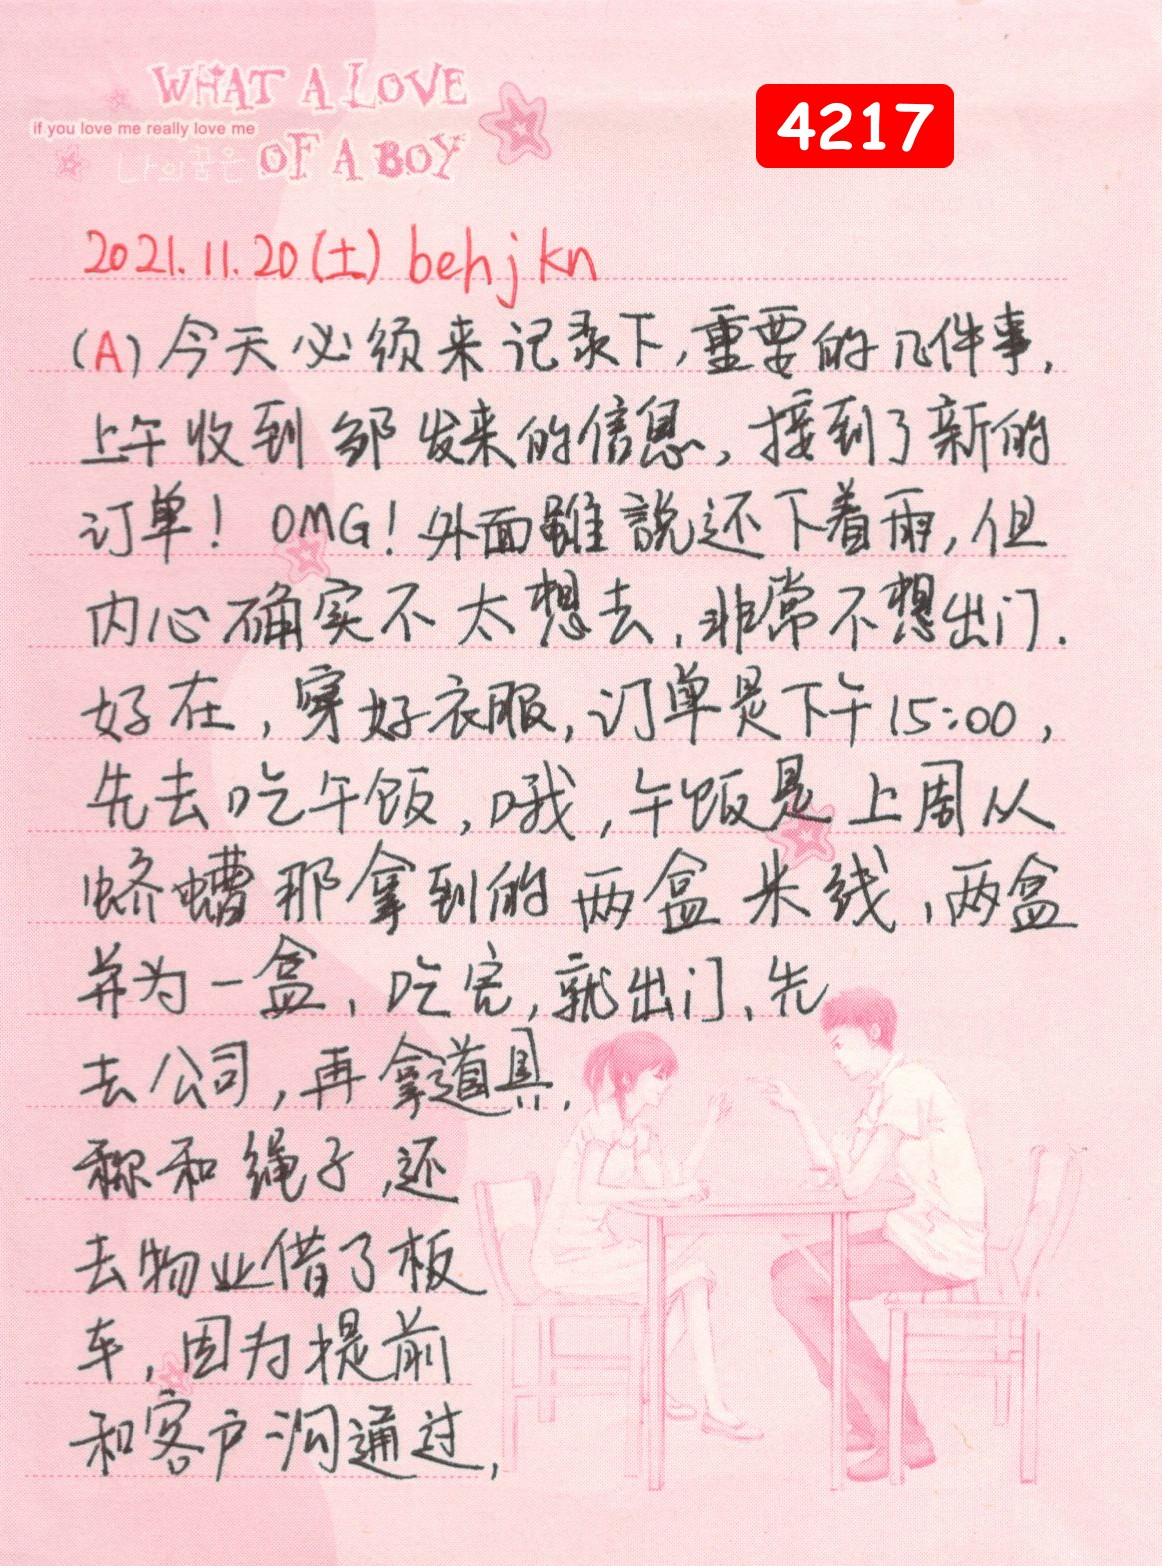 WHAT A LOVE
if you love me really love me
나의꿈은 OF A BOY
4217
2021.11.20(土) behjkn
(A)今天必须来记录下,重要的几件事,
上午收到邹发来的信息,接到了新的
订单! OMG!外面雖說还下着雨,但
内心确实不太想去,非常不想出门.
好在,穿好衣服,订单是下午15:00,
先去吃午饭,哦,午饭是上周从
蛴螬那拿到的两盒米线,两盒
并为一盒,吃完,就出门,先
去公司,再拿道具,
称和绳子,还
去物业借了板
车,因为提前
和客户沟通过,